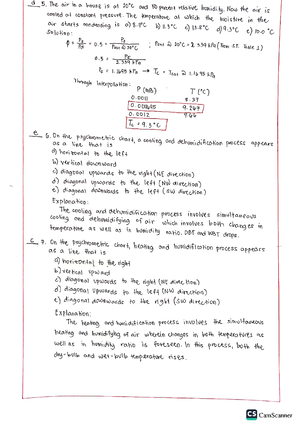 d 5. The air in a house is at 20°C and 50 percent relative humidity. Now the air is
cooled at constant pressure. The temperature at which the moisture in the
air starts condensing is a) 8.7°C b) 11.3°C c) 13.8°C d) 9.3°C e) 10.0°C
Solution:
φ = Pv/Ps → 0.5 = Pv/Psat @ 20°C ; Psat @ 20°C = 2.339 kPa (from SS Table 1)
0.5 = Pv/2.339 kPa
Pv = 1.1695 kPa → Tc = Tsat @ 1.1695 kPa
Through Interpolation:
P (MPa) T (°C)
0.0011
0.0011695 9.267
0.0012
Tc = 9.3°C
e 6. On the psychrometric chart, a cooling and dehumidification process appears
as a line that is
a) horizontal to the left
b) vertical downward
c) diagonal upwards to the right (NE direction)
d) diagonal upwards to the left (NW direction)
e) diagonal downwards to the left (SW direction)
Explanation:
The cooling and dehumidification process involves simultaneous
cooling and dehumidifying of air which involves both changes in
temperature as well as in humidity ratio. DBT and WBT drops.
c 7. On the psychrometric chart, heating and humidification process appears
as a line that is
a) horizontal to the right
b) vertical upward
c) diagonal upwards to the right (NE direction)
d) diagonal upwards to the left (NW direction)
e) diagonal downwards to the right (SW direction)
Explanation:
The heating and humidification process involves the simultaneous
heating and humidifying of air wherein changes in both temperatures as
well as in humidity ratio is foreseen. In this process, both the
dry-bulb and wet-bulb temperature rises.
CS CamScanner